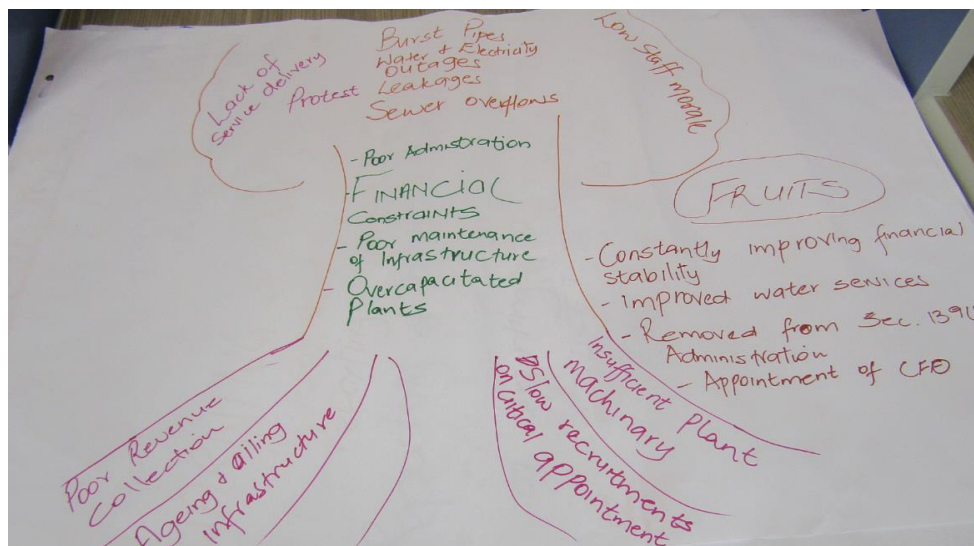 Lack of
service delivery
Protest
Burst Pipes
Water & Electricity
Outages
Leakages
Sewer overflows
Low Staff morale
- Poor Admistration
- FINANCIAL
Constraints
- Poor maintenance
of Infrastructure
- Overcapacitated
Plants
FRUITS
- Constantly improving financial
stability
- Improved water services
- Removed from Sec. 139
Administration
- Appointment of CFO
Poor Revenue
Collection
Ageing & ailing
Infrastructure
Slow recruitments
on critical appointment
Insufficient plant
machinary